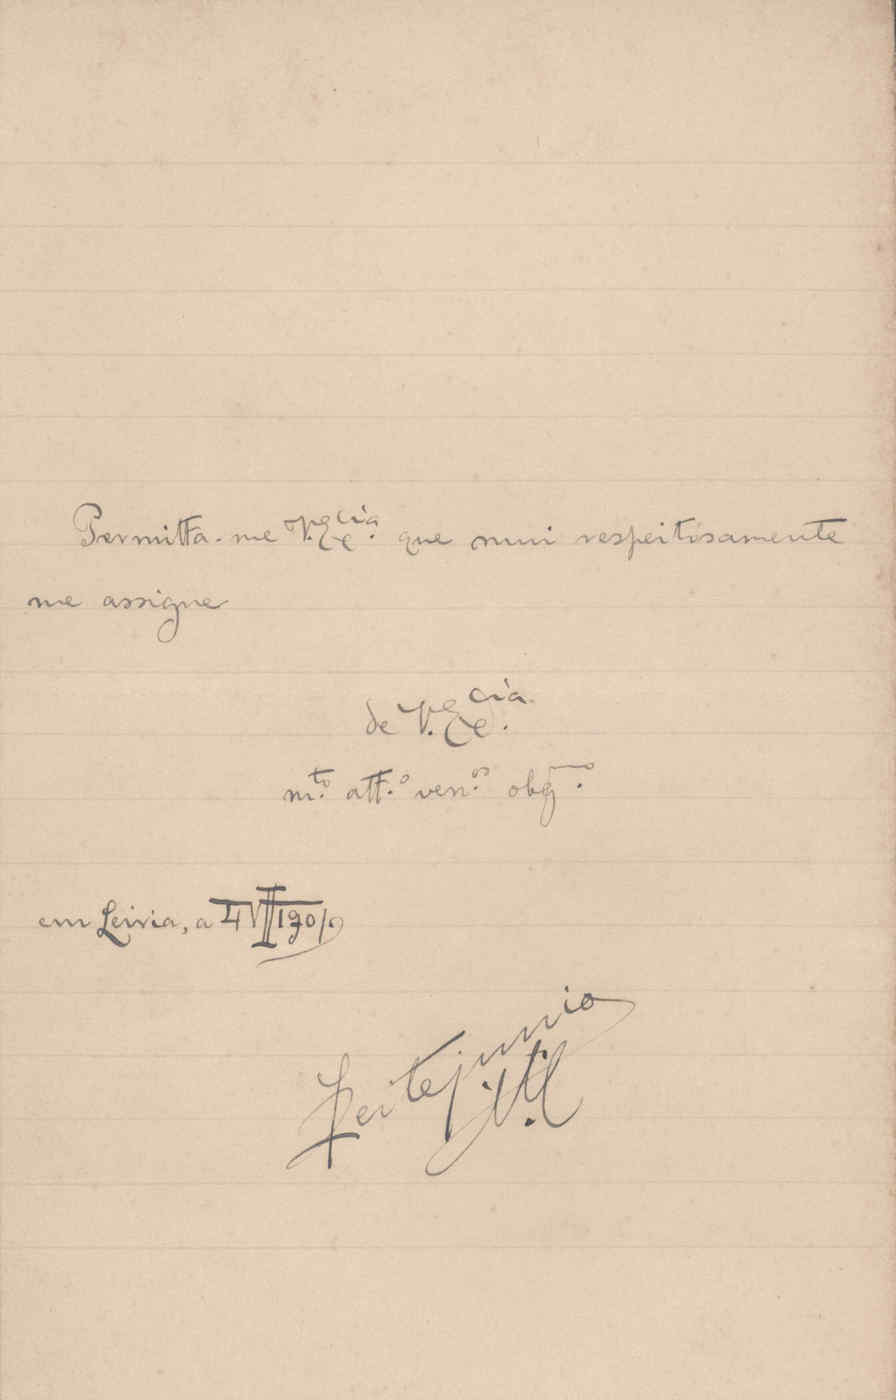 Permitta-me V. Ex.cia que mui respeitosamente
me assigne
de V. Ex.cia
m.to att.o ven.or obg.do
em Leiria, a